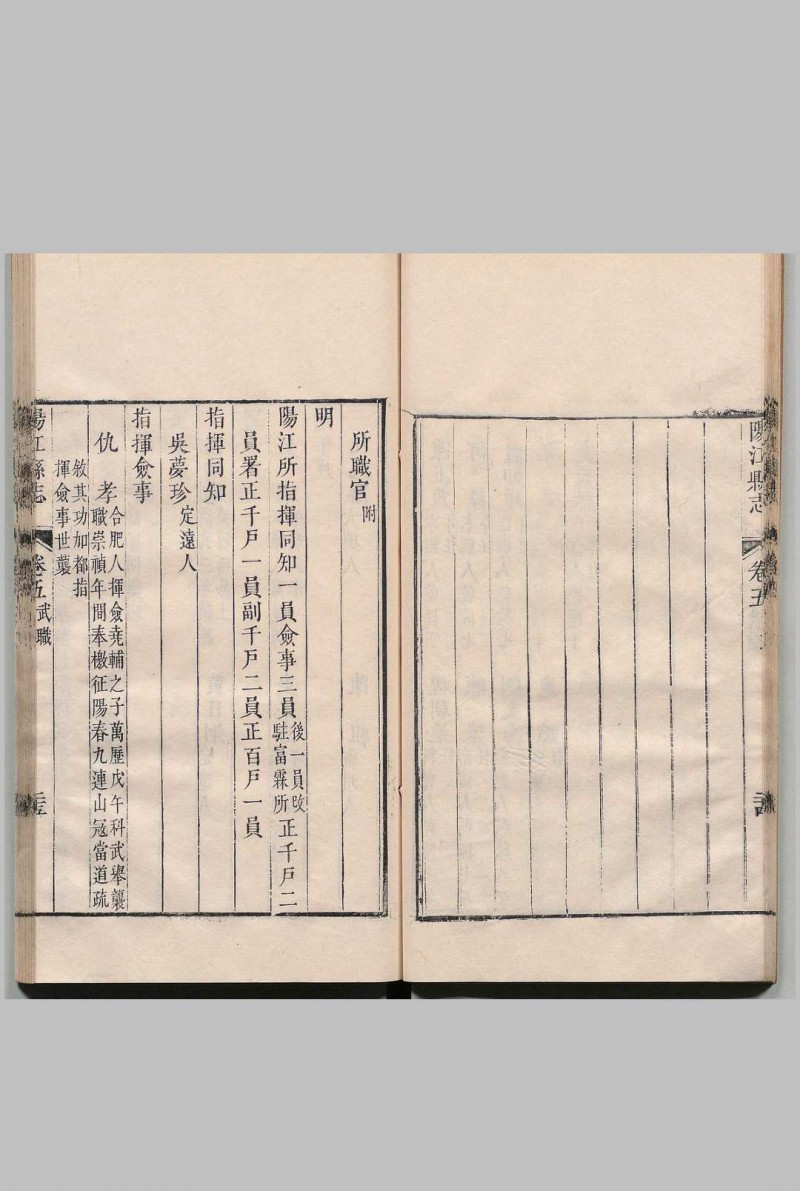 陽江縣志
卷五
所職官附
明
陽江所指揮同知一員僉事三員後一員改駐富霖所正千戶二
員署正千戶一員副千戶二員正百戶一員
指揮同知
吳夢珍定遠人
指揮僉事
仇孝合肥人揮僉堯輔之子萬歷戊午科武舉襲
職崇禎年間奉檄征陽春九連山冦當道疏
敘其功加都指
揮僉事世襲
陽江縣志
卷五武職